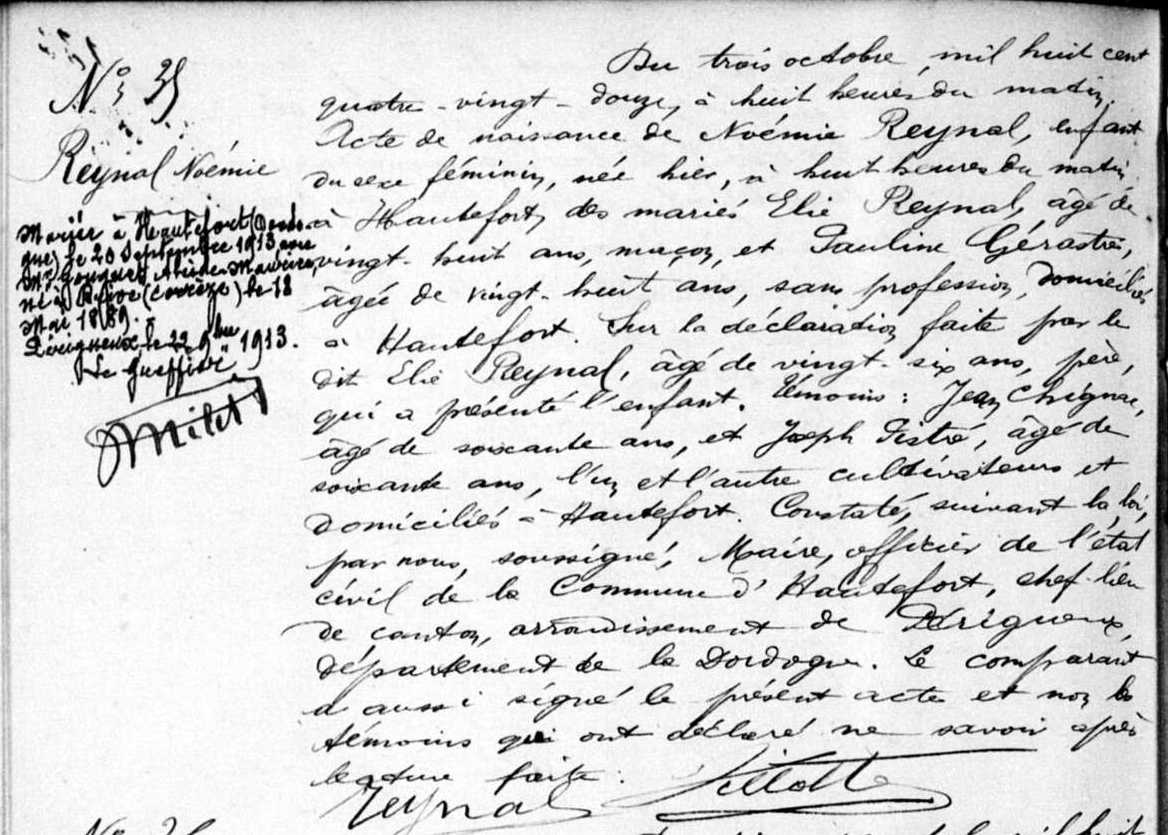 N° 35
Reynal Noémie
Mariée à Hautefort (Dordo-
gne) le 20 Septembre 1913 avec
Mr
né à Brive (Corrèze) le 18
Mai 1889.
Périgueux, le 22 9bre 1913.
Le Greffier
Milet
Du trois octobre, mil huit cent
quatre-vingt-douze, à huit heures du matin.
Acte de naissance de Noémie Reynal, enfant
du sexe féminin, née hier, à huit heures du matin
à Hautefort, des mariés Elie Reynal, âgé de
vingt-huit ans, maçon, et Pauline Gérastre,
âgée de vingt-huit ans, sans profession, domiciliés
à Hautefort. Sur la déclaration faite par le
dit Elie Reynal, âgé de vingt-six ans, père,
qui a présenté l'enfant. Témoins : Jean Chignac,
âgé de soixante ans, et Joseph Tistré, âgé de
soixante ans, l'un et l'autre cultivateurs et
domiciliés à Hautefort. Constaté, suivant la loi,
par nous, soussigné, Maire, officier de l'état
civil de la Commune d'Hautefort, chef-lieu
de canton, arrondissement de Périgueux,
département de la Dordogne. Le comparant
a aussi signé le présent acte et non les
témoins qui ont déclaré ne savoir après
lecture faite.
Reynal